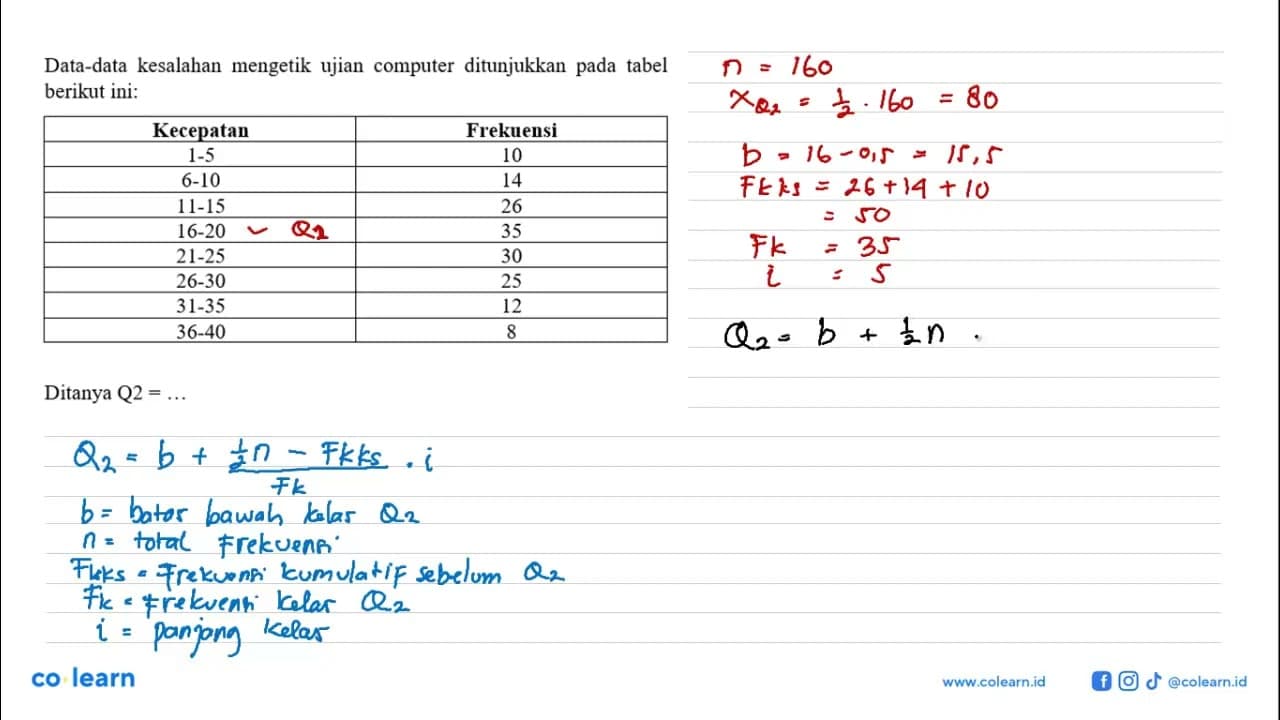 Data-data kesalahan mengetik ujian computer ditunjukkan pada tabel
berikut ini:
Kecepatan Frekuensi
1-5 10
6-10 14
11-15 26
16-20 ✓ Q2 35
21-25 30
26-30 25
31-35 12
36-40 8
Ditanya Q2 = …
Q2 = b + ½n - Fkks . i
Fk
b = batas bawah kelas Q2
n = total frekuensi
Fkks = Frekuensi kumulatif sebelum Q2
Fk = frekuensi kelas Q2
i = panjang kelas
n = 160
XQ2 = ½ . 160 = 80
b = 16 - 0,5 = 15,5
Fkks = 26 + 14 + 10
= 50
Fk = 35
i = 5
Q2 = b + ½n .
co learn
www.colearn.id
@colearn.id